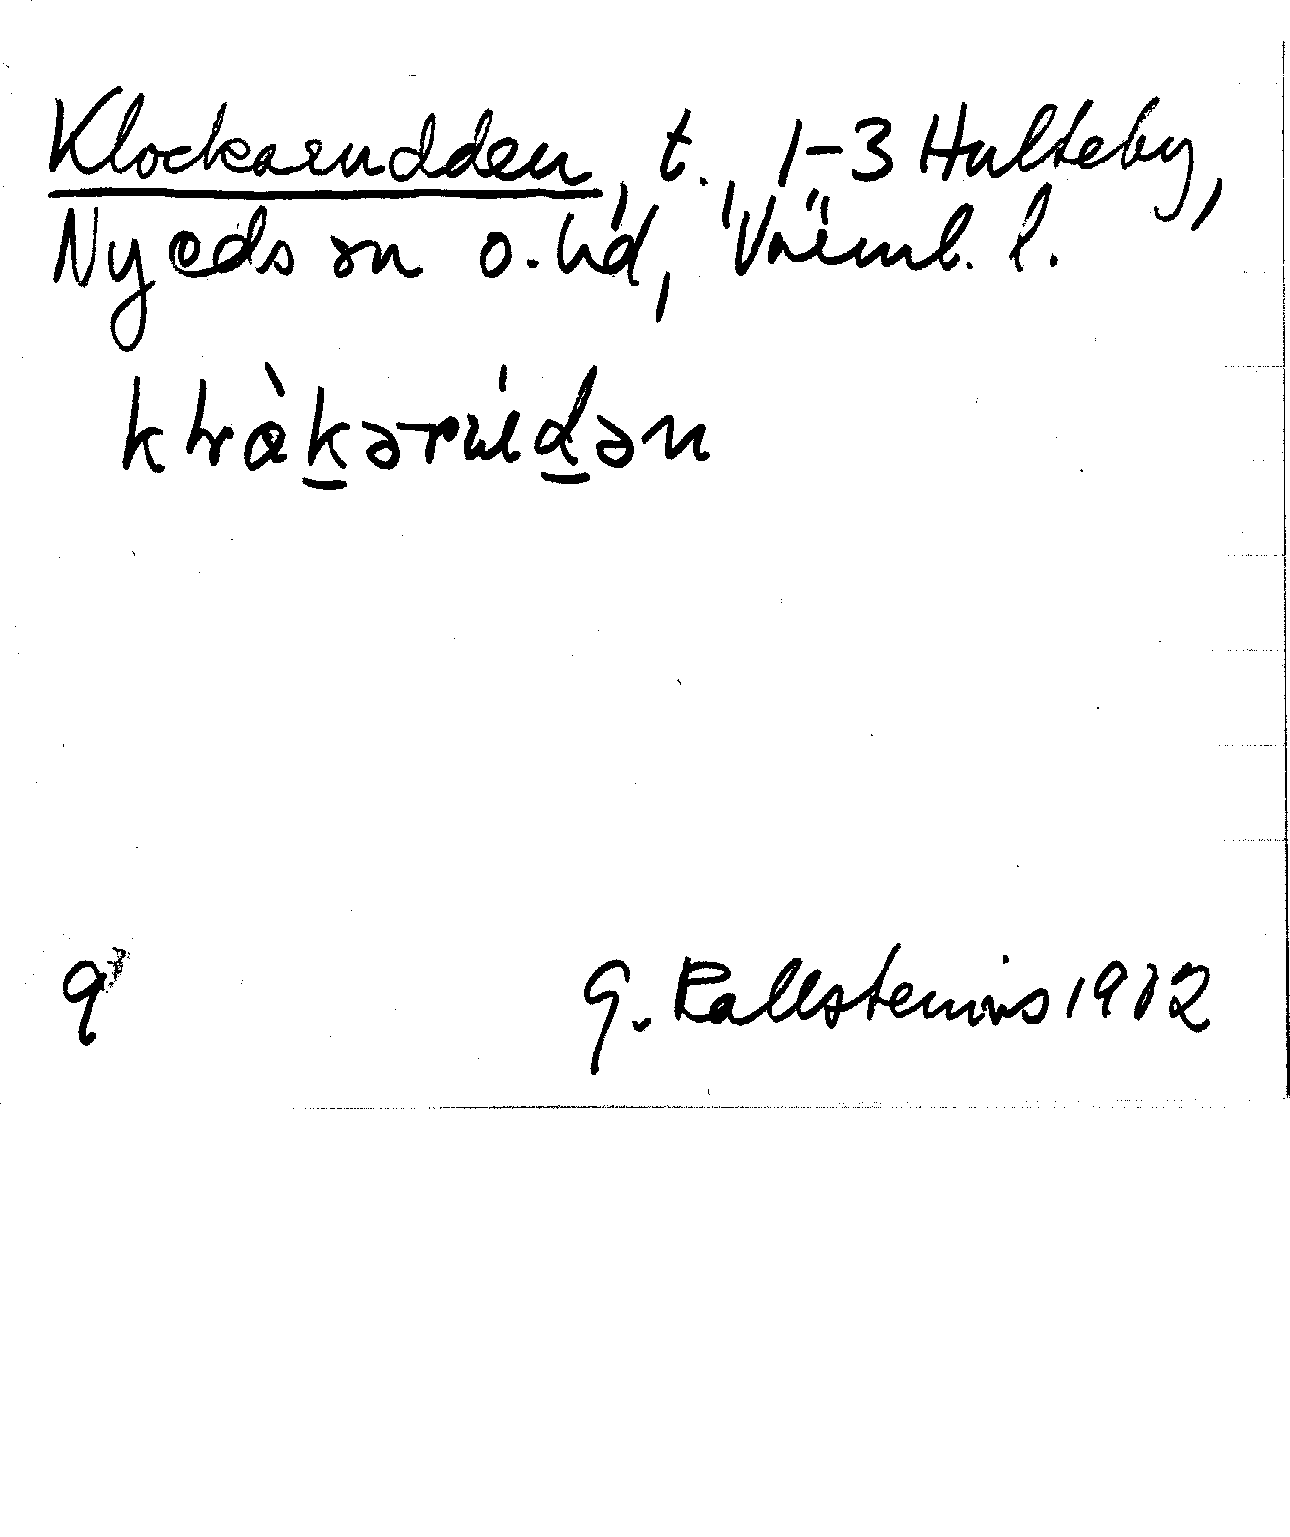 Klockarudden, t. 1-3 Hulteby,
Nyeds sn o. hd, Värml. l.
G. Kallstenius 1912